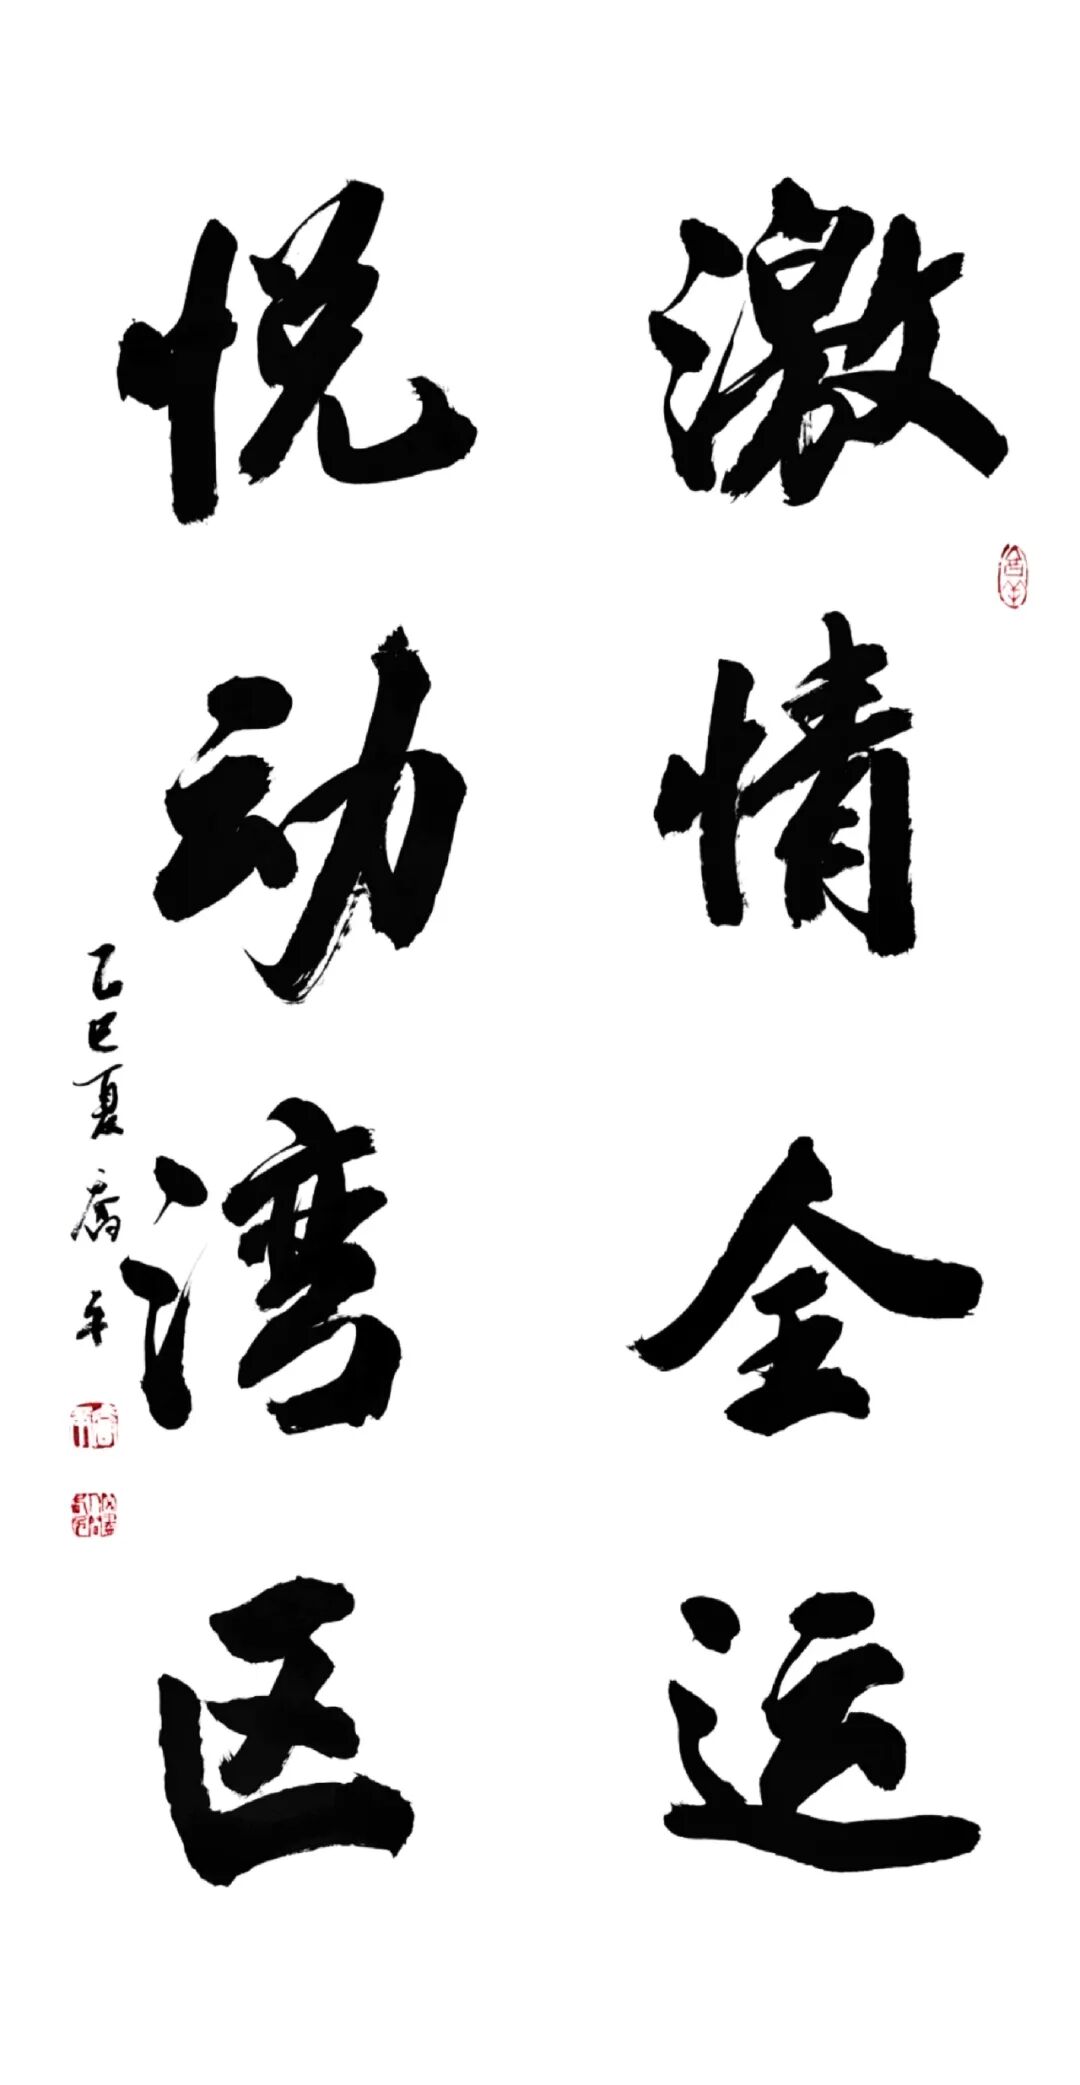 激情全运
悦动湾区
乙巳夏